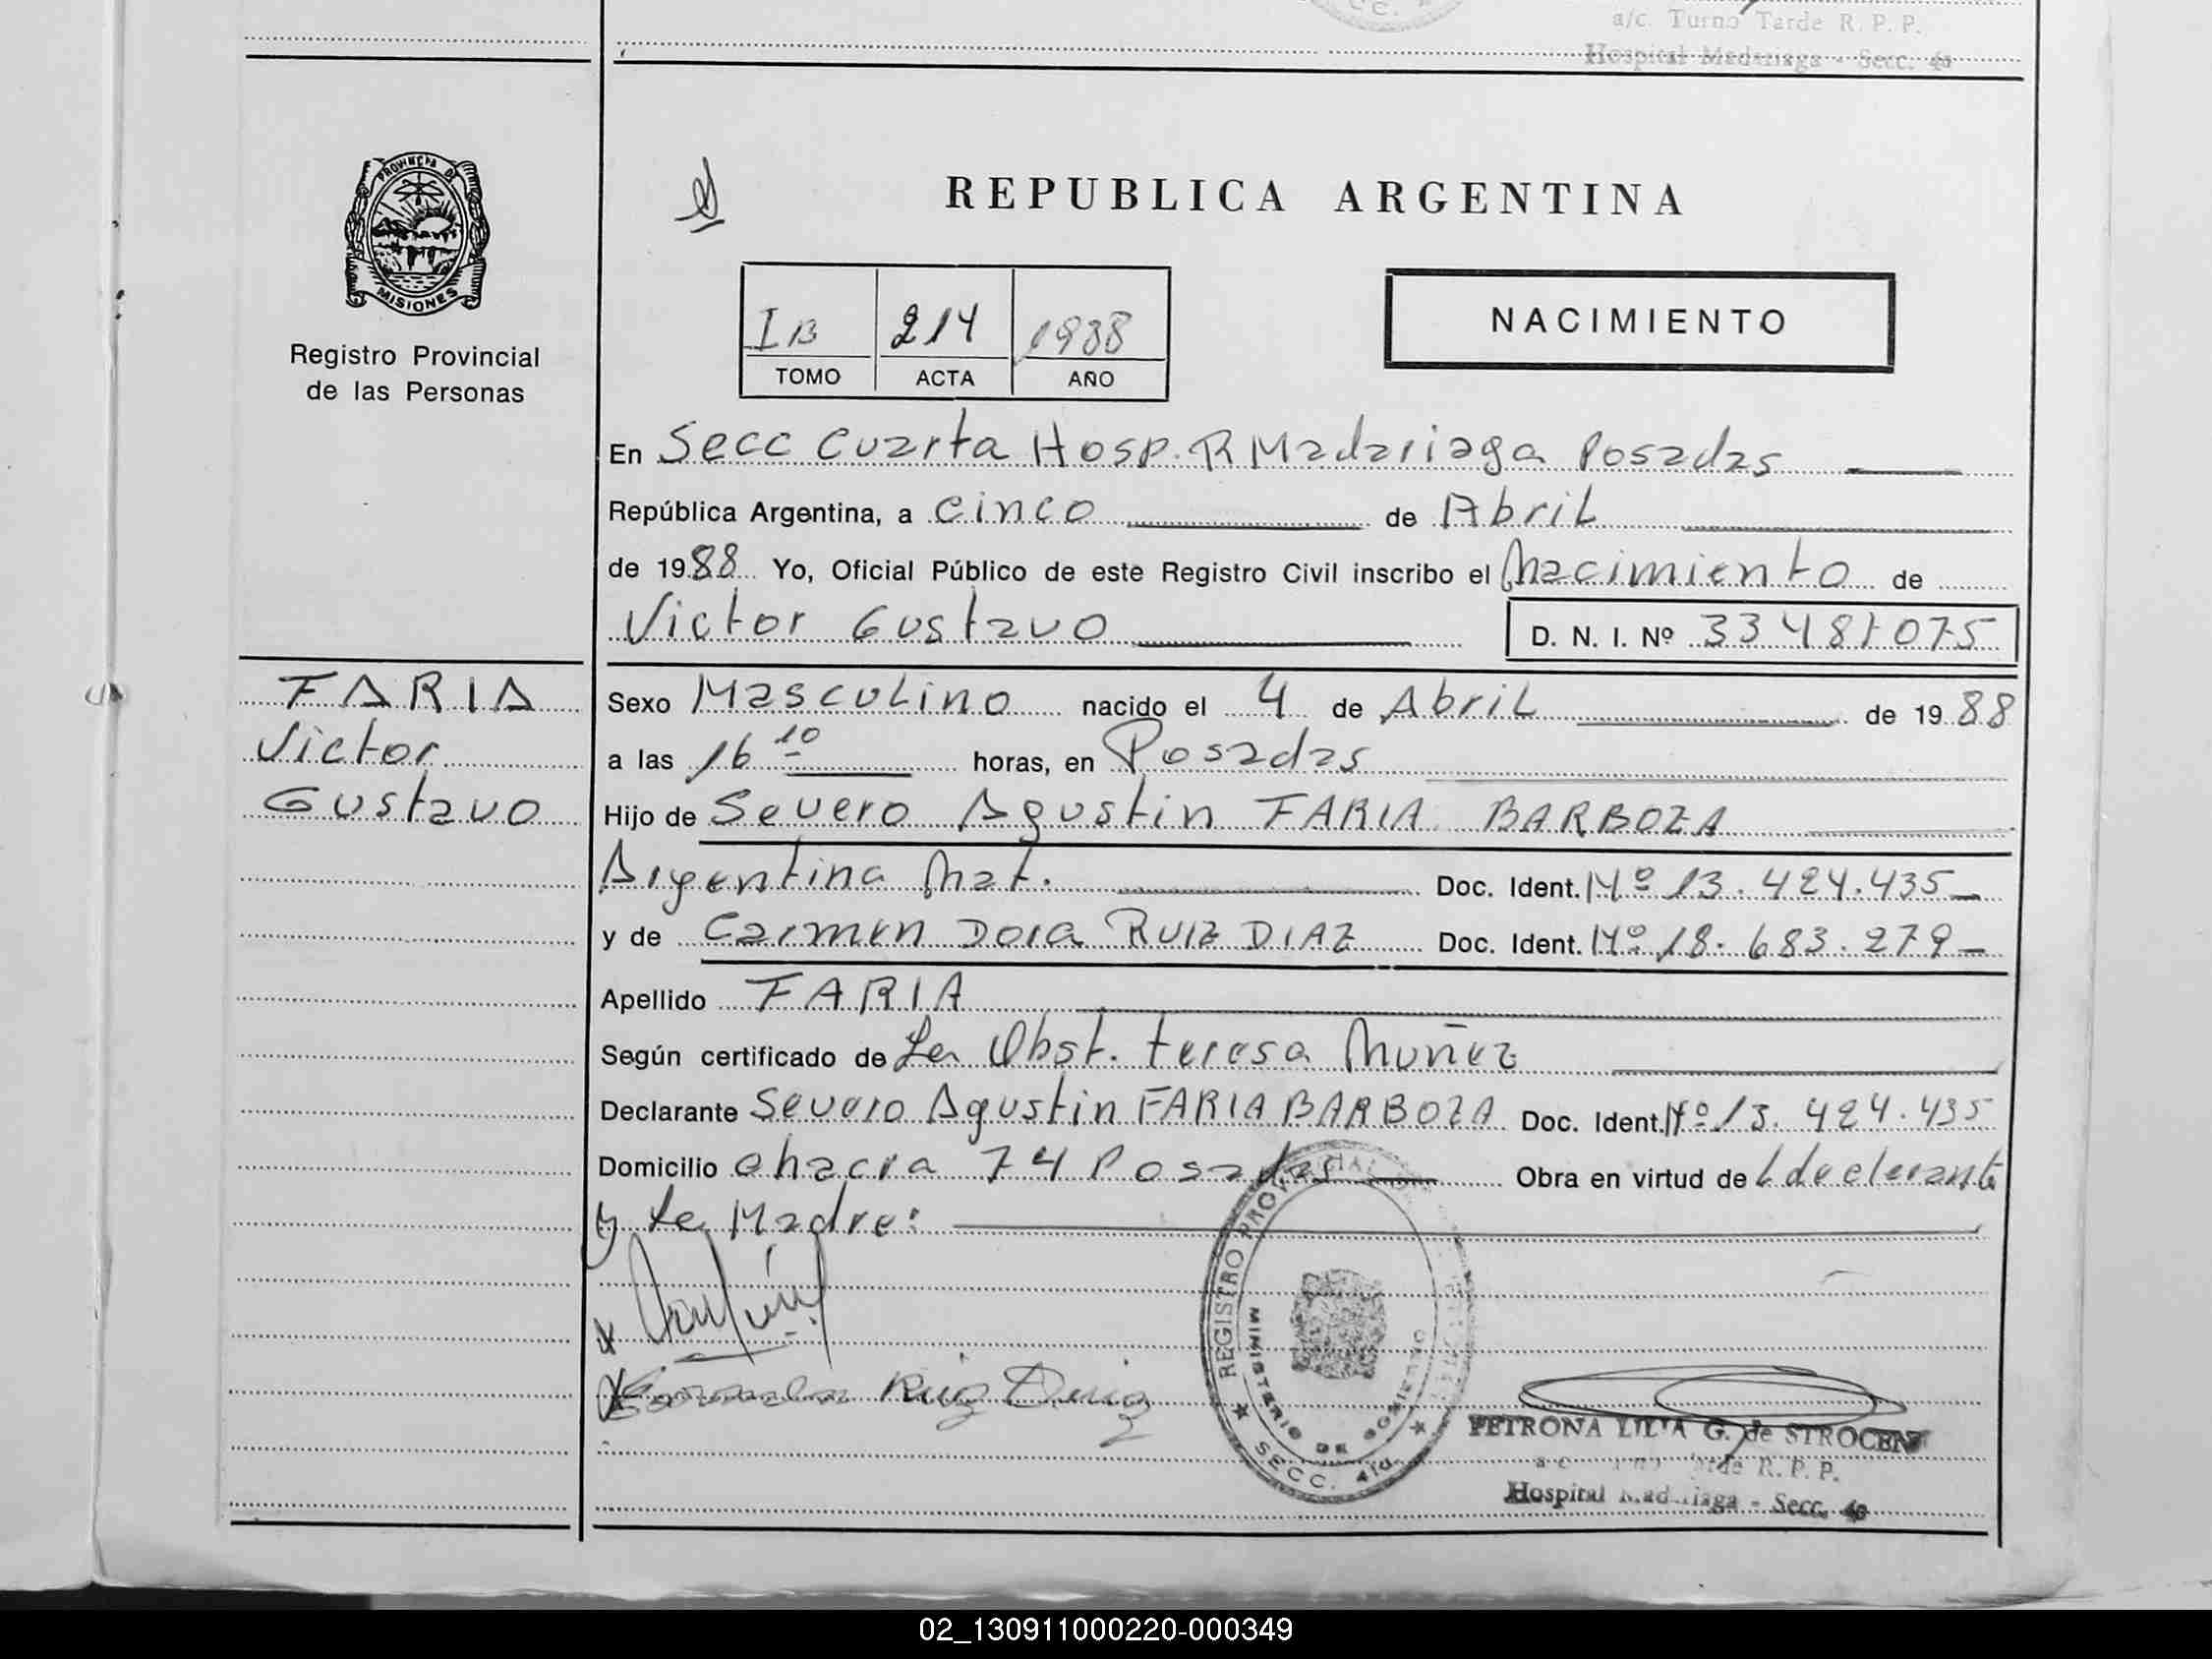 a/c. Turno Tarde R. P. P.
Hospital Madariaga - Secc. 4a
PROVINCIA DE
MISIONES
Registro Provincial
de las Personas
REPUBLICA ARGENTINA
I B 214 1988
TOMO ACTA AÑO
NACIMIENTO
En Secc Cuarta Hosp. R Madariaga Posadas
República Argentina, a cinco de Abril
de 1988 Yo, Oficial Público de este Registro Civil inscribo el Nacimiento de
Victor Gustavo D. N. I. Nº 33487075
FARIA
Victor
Gustavo
Sexo Masculino nacido el 4 de Abril de 1988
a las 16 10 horas, en Posadas
Hijo de Severo Agustin FARIA BARBOZA
Argentina Nat. Doc. Ident. Nº 13.424.435
y de Carmen Dora RUIZ DIAZ Doc. Ident. Nº 18.683.279
Apellido FARIA
Según certificado de La Obst. teresa Muñez
Declarante Severo Agustin FARIA BARBOZA Doc. Ident. Nº 13.424.435
Domicilio chacra 74 Posadas Obra en virtud de L declarante
y La Madre:
Ruiz Diaz
REGISTRO PROVINCIAL
MINISTERIO DE GOBIERNO
SECC. 4ta
PETRONA LILIA G. de STROCEN
R. P. P.
Hospital Madariaga - Secc. 4a
02_130911000220-000349